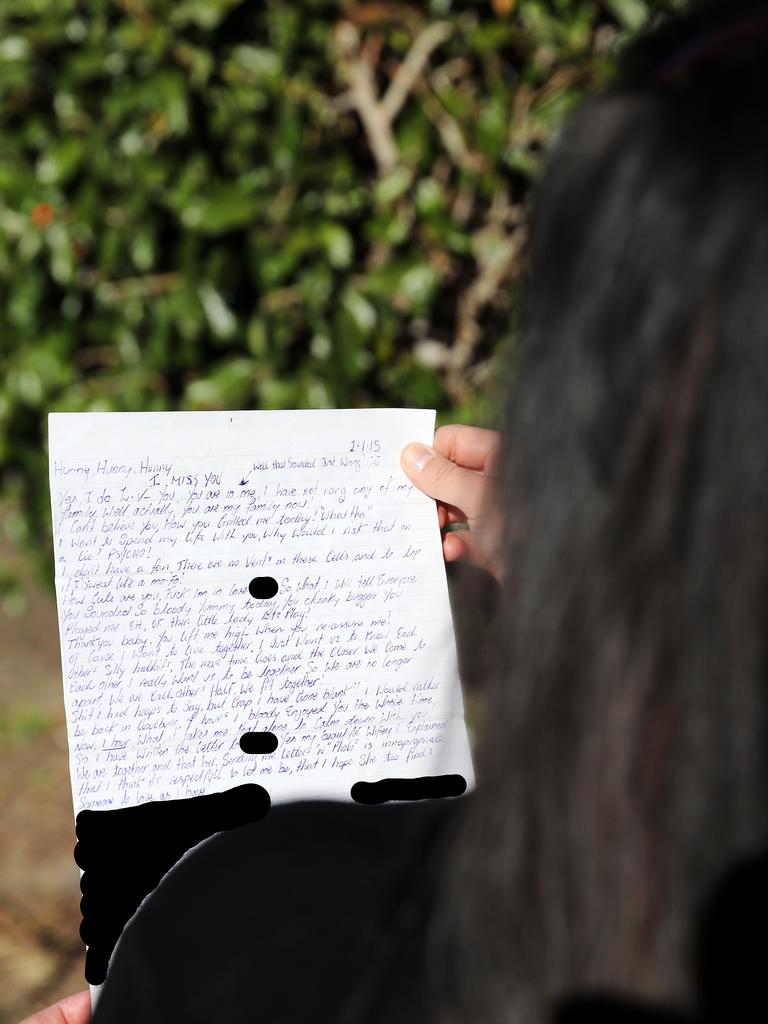 2-1-15
Hunny, Hunny, Hunny
I MISS YOU Well that Sounded Just Wrong!
Yes, I do You. You are in me, I have not rang any of my
family Well actually, you are my family now!
I Can't believe you, How you Grilled me today! "What tha"
I Want to Spend my Life With you, Why Would I risk that on
a Lie? PSYCHO!
I don't have a fan, There are no Vents in these Cells, and to top
it I Sweat Like a mo-fo!
How Cute are you, Fuck I'm in love So what I Will tell Everyone
You Sounded So bloody Yummy today, You cheaky bugger You
Played me EH, OK then little Lady lets Play!
Thankyou baby, You Lift me high When You re-assure me!
of Cause I Want to Live together, I Just Want us to Know Each
Other's Silly habbits, The more time Goes and the Closer We Come to
Each other I really Want us to be together So We are no longer
apart, We are Each other's Half, We fit together!
Shit I had heaps to Say, but Crap I have Gone blank!! I Would rather
be back in Goulburn, hours I bloody Enjoyed You the Whole time,
Now, 1 hour What it takes me Just alone to Calm down With You
So I have Written the Letter to Yes my beautiful Wifey I Explained
We are together and that her, Sending me Letters "n" Photo's is innapropriate
that I think its respectfull to let me be, that I hope She too finds
Someone to Love as I have